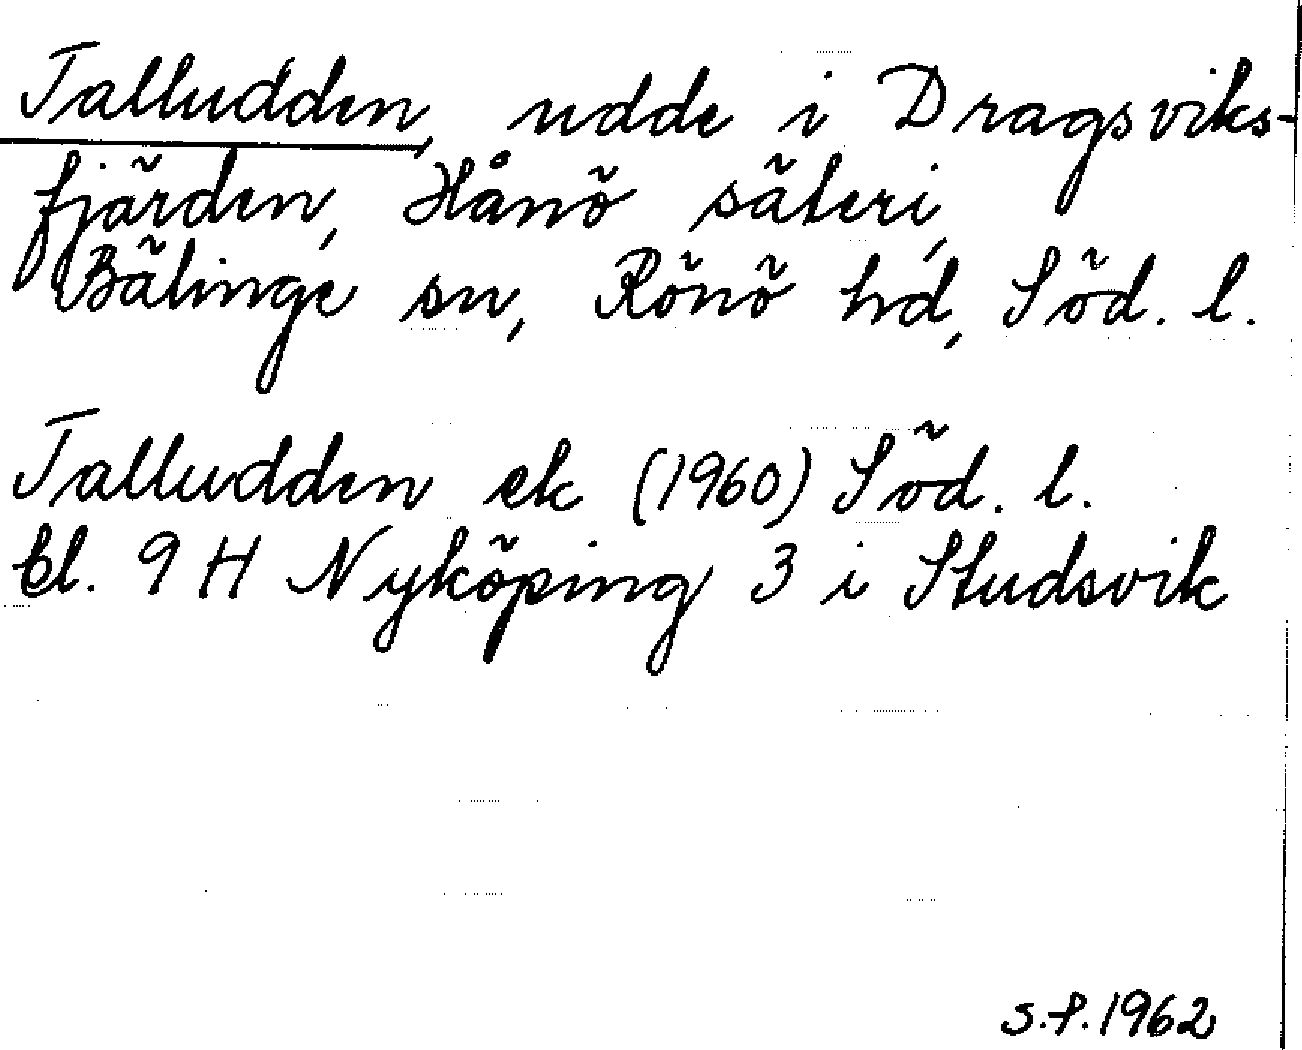 Talludden, udde i Dragsviks-
fjärden, Hånö säteri,
Bälinge sn, Rönö hd, Söd. l.
Talludden ek (1960) Söd. l.
bl. 9 H Nyköping 3 i Studsvik
s.f. 1962